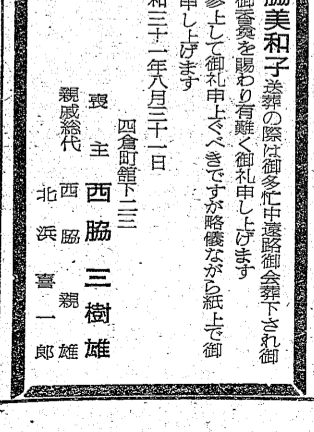 脇美和子送葬の際は御多忙中遠路御会葬下され御
御香奠を賜わり有難く御礼申し上げます
参上して御礼申上ぐべきですが略儀ながら紙上で御
申し上げます
和三十一年八月三十一日
四倉町舘下二二
喪主 西脇三樹雄
親戚総代 西脇親雄
北浜喜一郎